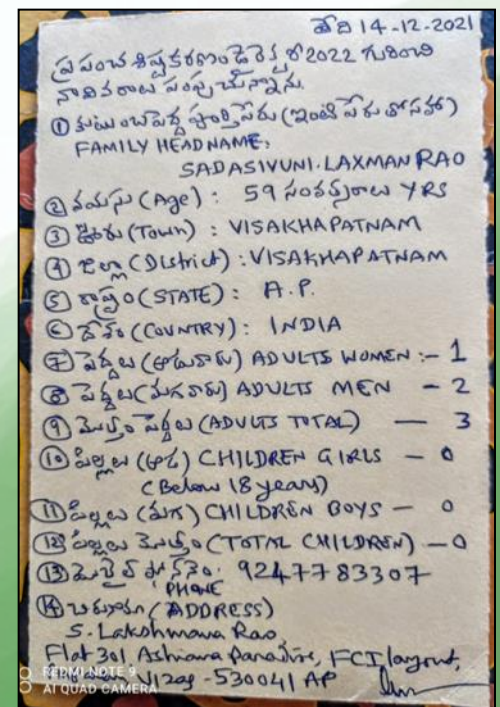 తేది 14-12-2021
ప్రపంచ శిష్టకరణం డైరెక్టరీ 2022 గురించి
నా వివరాలు పంపుచున్నాను.
① కుటుంబపెద్ద పూర్తిపేరు (ఇంటి పేరుతోసహా)
FAMILY HEAD NAME,
SADASIVUNI. LAXMAN RAO
② వయసు (Age) : 59 సంవత్సరాలు YRS
③ ఊరు (Town) : VISAKHAPATNAM
④ జిల్లా (District) : VISAKHAPATNAM
⑤ రాష్ట్రం (STATE) : A.P.
⑥ దేశం (COUNTRY) : INDIA
⑦ పెద్దలు (ఆడువారు) ADULTS WOMEN :- 1
⑧ పెద్దలు (మగవారు) ADULTS MEN - 2
⑨ మొత్తం పెద్దలు (ADULTS TOTAL) — 3
⑩ పిల్లలు (ఆడ) CHILDREN GIRLS - 0
(Below 18 years)
⑪ పిల్లలు (మగ) CHILDREN BOYS - 0
⑫ పిల్లలు మొత్తం (TOTAL CHILDREN) - 0
⑬ మొబైల్ ఫోన్ నెం. 9247783307
PHONE
⑭ చిరునామా (ADDRESS)
S. Lakshmana Rao,
Flat 301 Ashiana Paradise, FCI layout,
Vizag - 530041 AP
REDMI NOTE 9
AI QUAD CAMERA